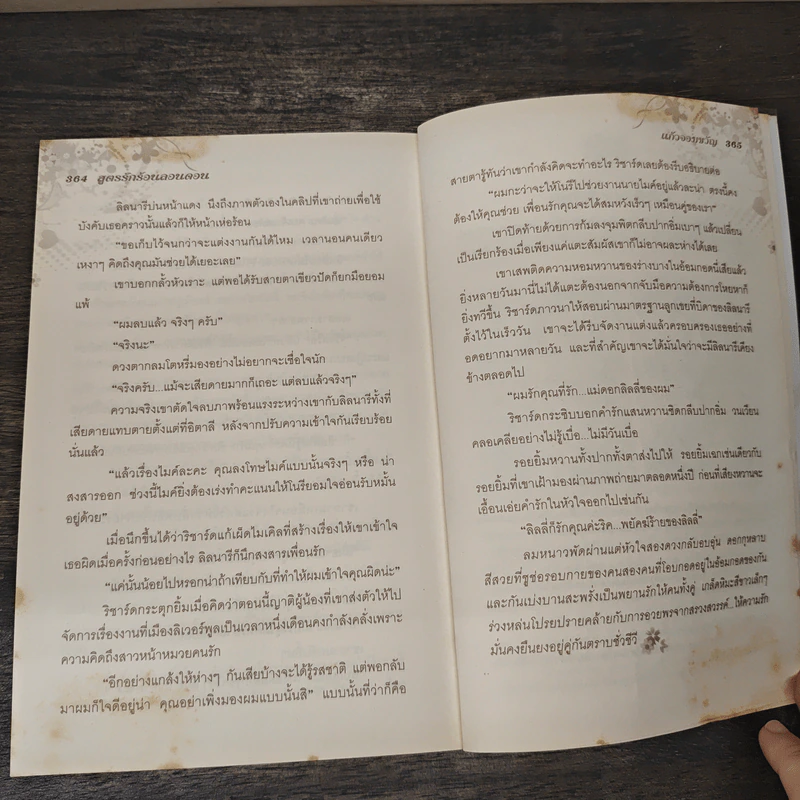 364 สูตรรักร้อนลอนดอน
ลิลนารีบ่นหน้าแดง นึงถึงภาพตัวเองในคลิปที่เขาถ่ายเพื่อใช้
บังคับเธอคราวนั้นแล้วก็ให้หน้าเห่อร้อน
“ขอเก็บไว้จนกว่าจะแต่งงานกันได้ไหม เวลานอนคนเดียว
เหงาๆ คิดถึงคุณมันช่วยได้เยอะเลย”
เขาบอกกลั้วหัวเราะ แต่พอได้รับสายตาเขียวปัดก็ยกมือยอม
แพ้
“ผมลบแล้ว จริงๆ ครับ”
“จริงนะ”
ดวงตากลมโตหรี่มองอย่างไม่อยากจะเชื่อใจนัก
“จริงครับ...แม้จะเสียดายมากก็เถอะ แต่ลบแล้วจริงๆ”
ความจริงเขาตัดใจลบภาพร้อนแรงระหว่างเขากับลิลนารีทั้งที่
เสียดายแทบตายตั้งแต่ที่อิตาลี หลังจากปรับความเข้าใจกันเรียบร้อย
นั่นแล้ว
“แล้วเรื่องไมค์ละคะ คุณลงโทษไมค์แบบนั้นจริงๆ หรือ น่า
สงสารออก ช่วงนี้ไมค์ยิ่งต้องเร่งทำคะแนนให้โนรียอมใจอ่อนรับหมั้น
อยู่ด้วย”
เมื่อนึกขึ้นได้ว่าริชาร์ดแก้เผ็ดไมเคิลที่สร้างเรื่องให้เขาเข้าใจ
เธอผิดเมื่อครั้งก่อนอย่างไร ลิลนารีก็นึกสงสารเพื่อนรัก
“แค่นั้นน้อยไปหรอกน่าถ้าเทียบกับที่ทำให้ผมเข้าใจคุณผิดน่ะ”
ริชาร์ดกระตุกยิ้มเมื่อคิดว่าตอนนี้ญาติผู้น้องที่เขาส่งตัวให้ไป
จัดการเรื่องงานที่เมืองลิเวอร์พูลเป็นเวลาหนึ่งเดือนคงกำลังคลั่งเพราะ
ความคิดถึงสาวหน้าหมวยคนรัก
“อีกอย่างแกล้งให้ห่างๆ กันเสียบ้างจะได้รู้รสชาติ แต่พอกลับ
มาผมก็ใจดีอยู่น่า คุณอย่าเพิ่งมองผมแบบนั้นสิ” แบบนั้นที่ว่าก็คือ
แก้วจอมขวัญ 365
สายตารู้ทันว่าเขากำลังคิดจะทำอะไร ริชาร์ดเลยต้องรีบอธิบายต่อ
“ผมกะว่าจะให้โนรีไปช่วยงานนายไมค์อยู่แล้วละน่า ตรงนี้คง
ต้องให้คุณช่วย เพื่อนรักคุณจะได้สมหวังเร็วๆ เหมือนคู่ของเรา”
เขาปิดท้ายด้วยการก้มลงจุมพิตกลีบปากอิ่มเบาๆ แล้วเปลี่ยน
เป็นเรียกร้องเมื่อเพียงแค่แตะสัมผัสเขาก็ไม่อาจผละห่างได้เลย
เขาเสพติดความหอมหวานของร่างบางในอ้อมกอดนี่เสียแล้ว
ยิ่งหลายวันมานี่ไม่ได้แตะต้องนอกจากจับมือความต้องการโหยหาก็
ยิ่งทวีขึ้น ริชาร์ดภาวนาให้สอบผ่านมาตรฐานลูกเขยที่บิดาของลิลนารี
ตั้งไว้ในเร็ววัน เขาจะได้รีบจัดงานแต่งแล้วครอบครองเธออย่างที่
อดอยากมาหลายวัน และที่สำคัญเขาจะได้มั่นใจว่าจะมีลิลนารีเคียง
ข้างตลอดไป
“ผมรักคุณที่รัก...แม่ดอกลิลลี่ของผม”
ริชาร์ดกระซิบบอกคำรักแสนหวานชิดกลีบปากอิ่ม วนเวียน
คลอเคลียอย่างไม่รู้เบื่อ...ไม่มีวันเบื่อ
รอยยิ้มหวานทั้งปากทั้งตาส่งไปให้ รอยยิ้มเฉกเช่นเดียวกับ
รอยยิ้มที่เขาเฝ้ามองผ่านภาพถ่ายมาตลอดหนึ่งปี ก่อนที่เสียงหวานจะ
เอื้อนเอ่ยคำรักในหัวใจออกไปเช่นกัน
“ลิลลี่ก็รักคุณค่ะริค...พยัคฆ์ร้ายของลิลลี่”
ลมหนาวพัดผ่านแต่หัวใจสองดวงกลับอบอุ่น ดอกกุหลาบ
สีสวยที่ชูช่อรอบกายของคนสองคนที่โอบกอดอยู่ในอ้อมกอดของกัน
และกันเบ่งบานสะพรั่งเป็นพยานรักให้คนทั้งคู่ เกล็ดหิมะสีขาวเล็กๆ
ร่วงหล่นโปรยปรายคล้ายกับการอวยพรจากสรวงสวรรค์...ให้ความรัก
มั่นคงยืนยงอยู่คู่กันตราบชั่วชีวี